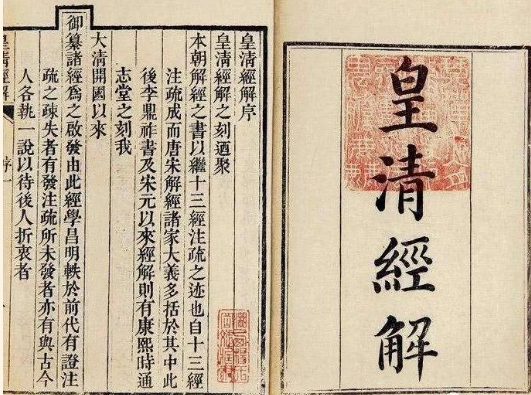 皇清經解
皇清經解序
皇清經解之刻迺聚
本朝解經之書以繼十三經注疏之迹也自十三經
注疏成而唐宋解經諸家大義多括於其中此
後李鼎祚書及宋元以來經解則有康熙時通
志堂之刻我
大清開國以來
御纂諸經爲之啟發由此經學昌明軼於前代有證注
疏之疎失者有發注疏所未發者亦有與古今
人各執一說以待後人折衷者
皇清經解
序一